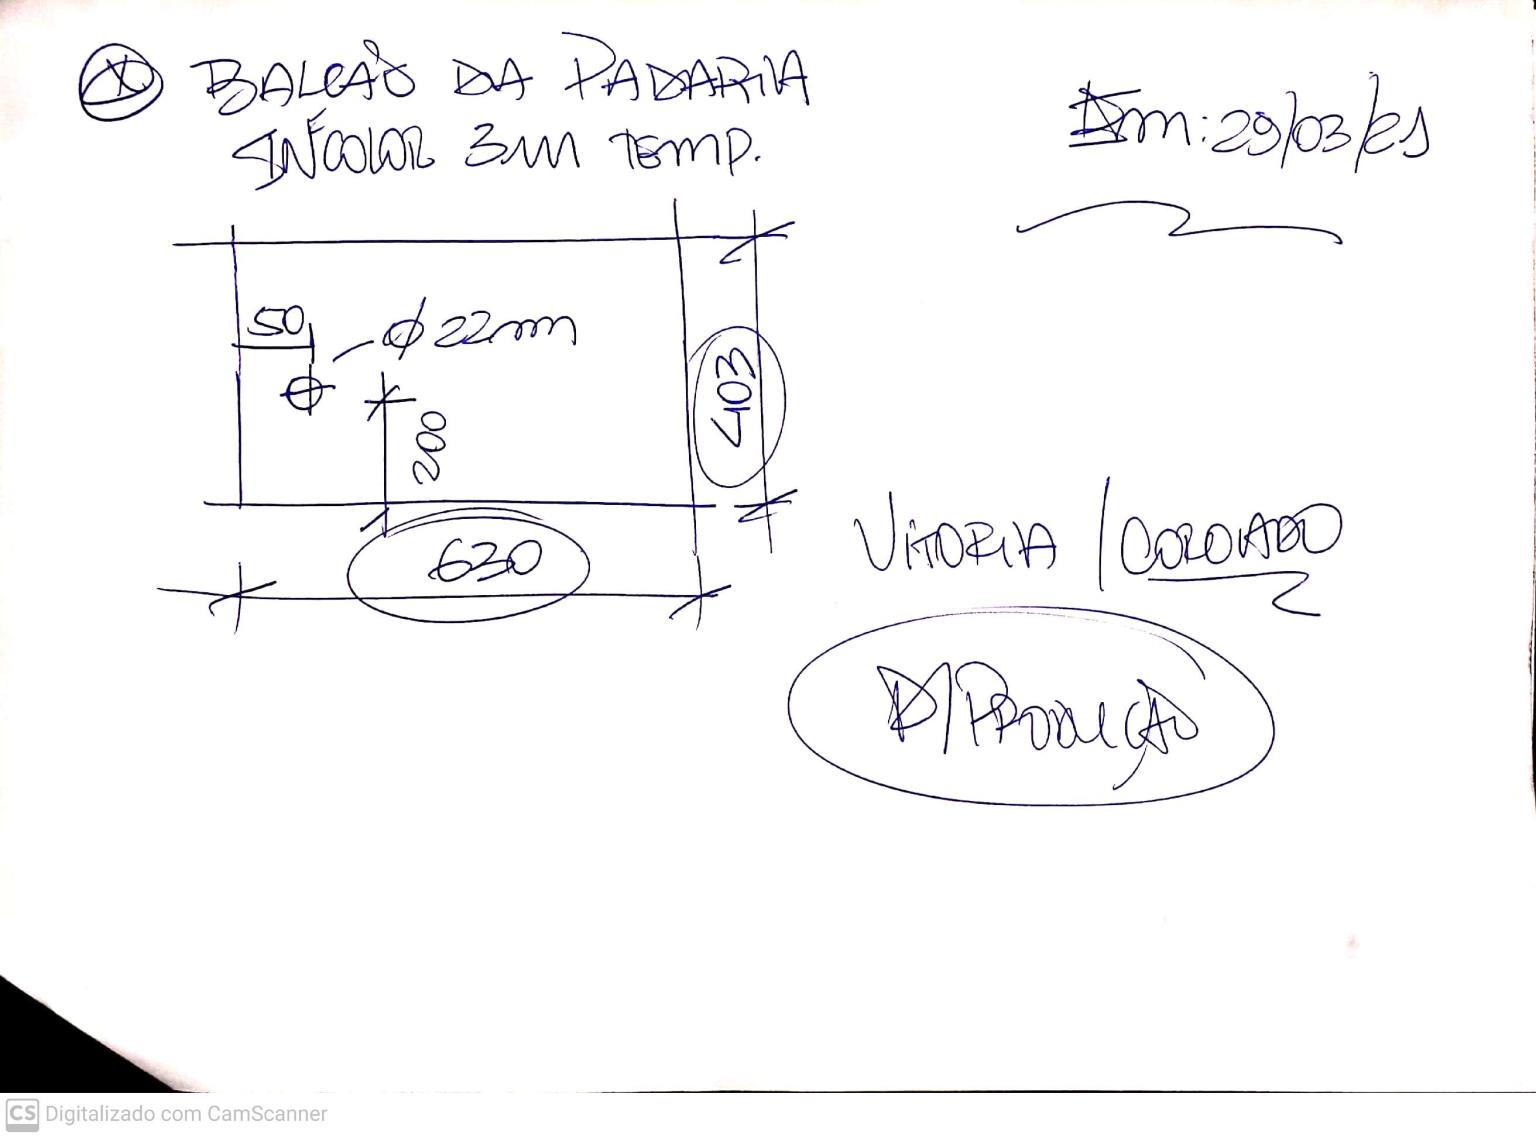 BALCÃO DA PADARIA
INCOLOR 3m TEMP.
Em: 29/03/21
50
Ø 22mm
200
403
630
VITORIA / COROADO
P/ PRODUÇÃO
CS Digitalizado com CamScanner